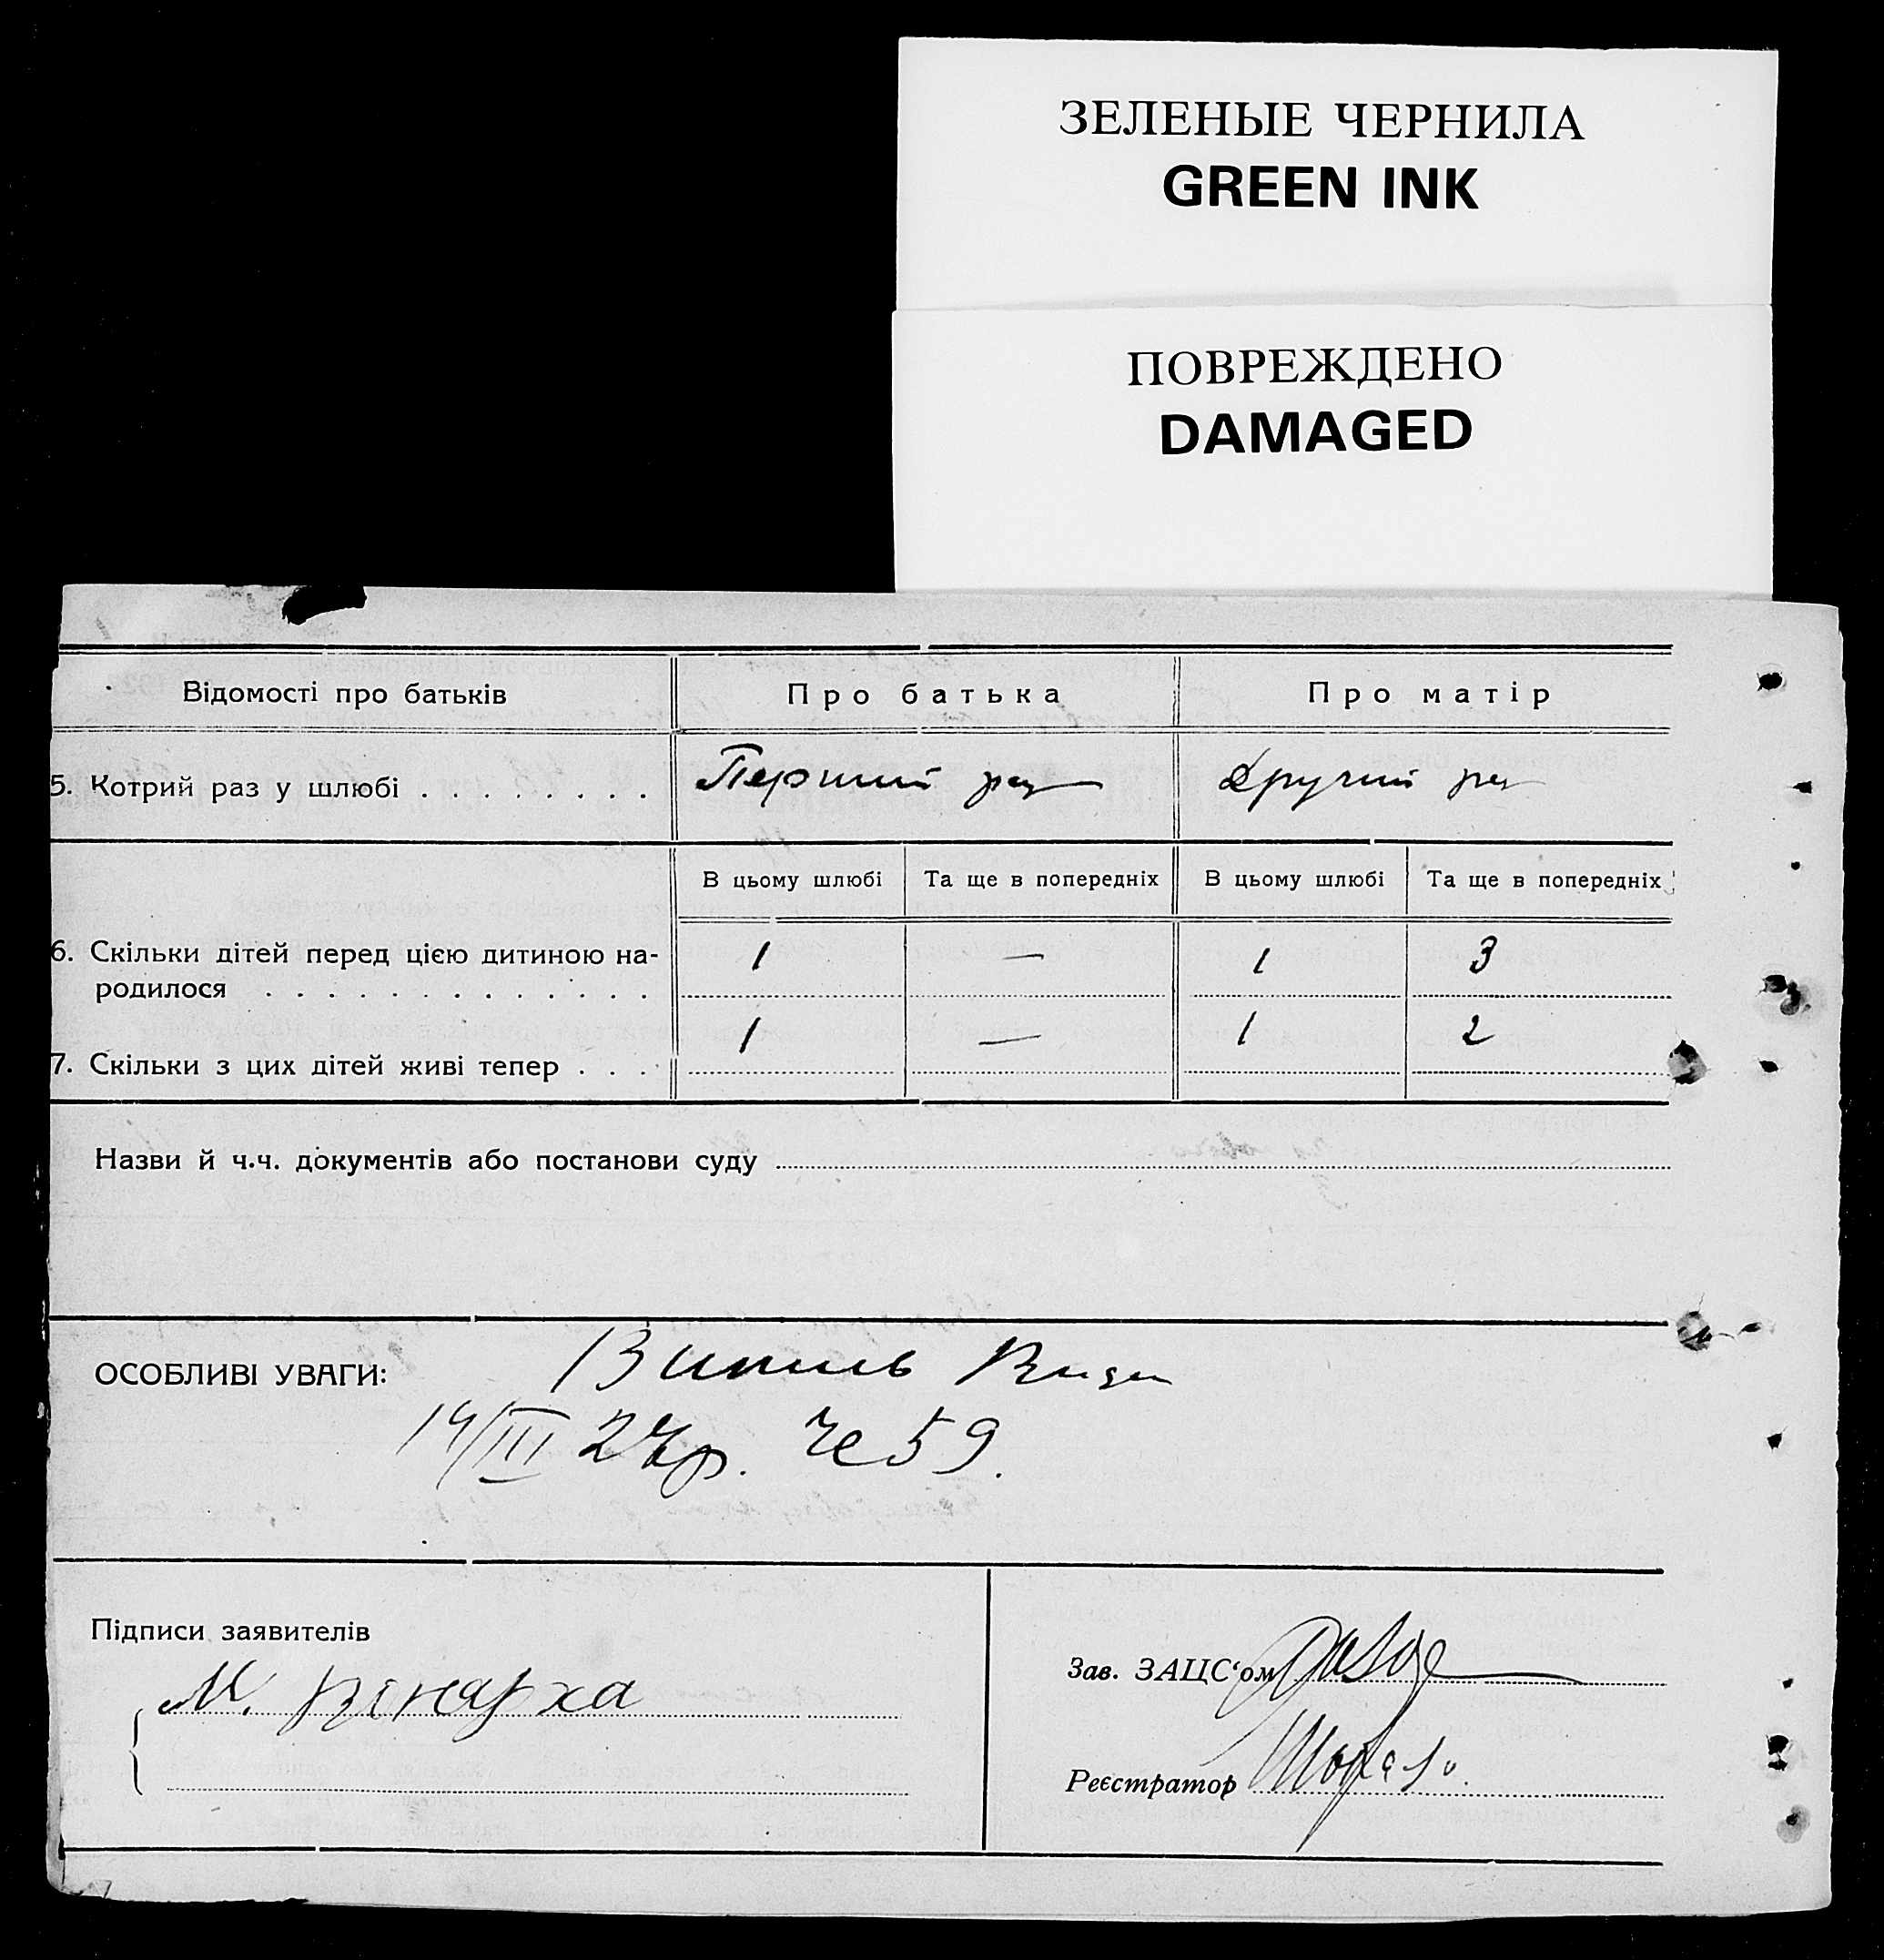 ЗЕЛЕНЫЕ ЧЕРНИЛА
GREEN INK
ПОВРЕЖДЕНО
DAMAGED
Відомості про батьків Про батька Про матір
5. Котрий раз у шлюбі . . . . . . . . Перший раз Другий раз
В цьому шлюбі Та ще в попередніх В цьому шлюбі Та ще в попередніх
6. Скільки дітей перед цією дитиною на-
родилося . . . . . . . . . . . . . . 1 — 1 3
7. Скільки з цих дітей живі тепер . . . . 1 — 1 2
Назви й ч.ч. документів або постанови суду
ОСОБЛИВІ УВАГИ:
14/III 27р. Че 59.
Підписи заявителів
М.
Зав. ЗАЦС‘ом
Реєстратор